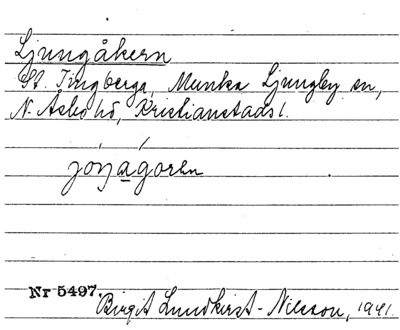 Ljungåkern
St. Tingberga, Munka Ljungby sn,
N. Åsbo hd, Kristianstads l.
Nr 5497.
Birgit Lundkvist-Nilsson, 1941.